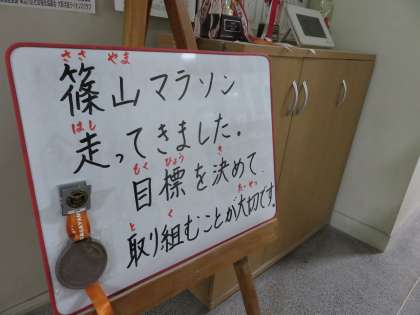 ささ やま
篠山マラソン
はし
走ってきました。
もく ひょう き
目標を決めて
と く たいせつ
取り組むことが大切です。